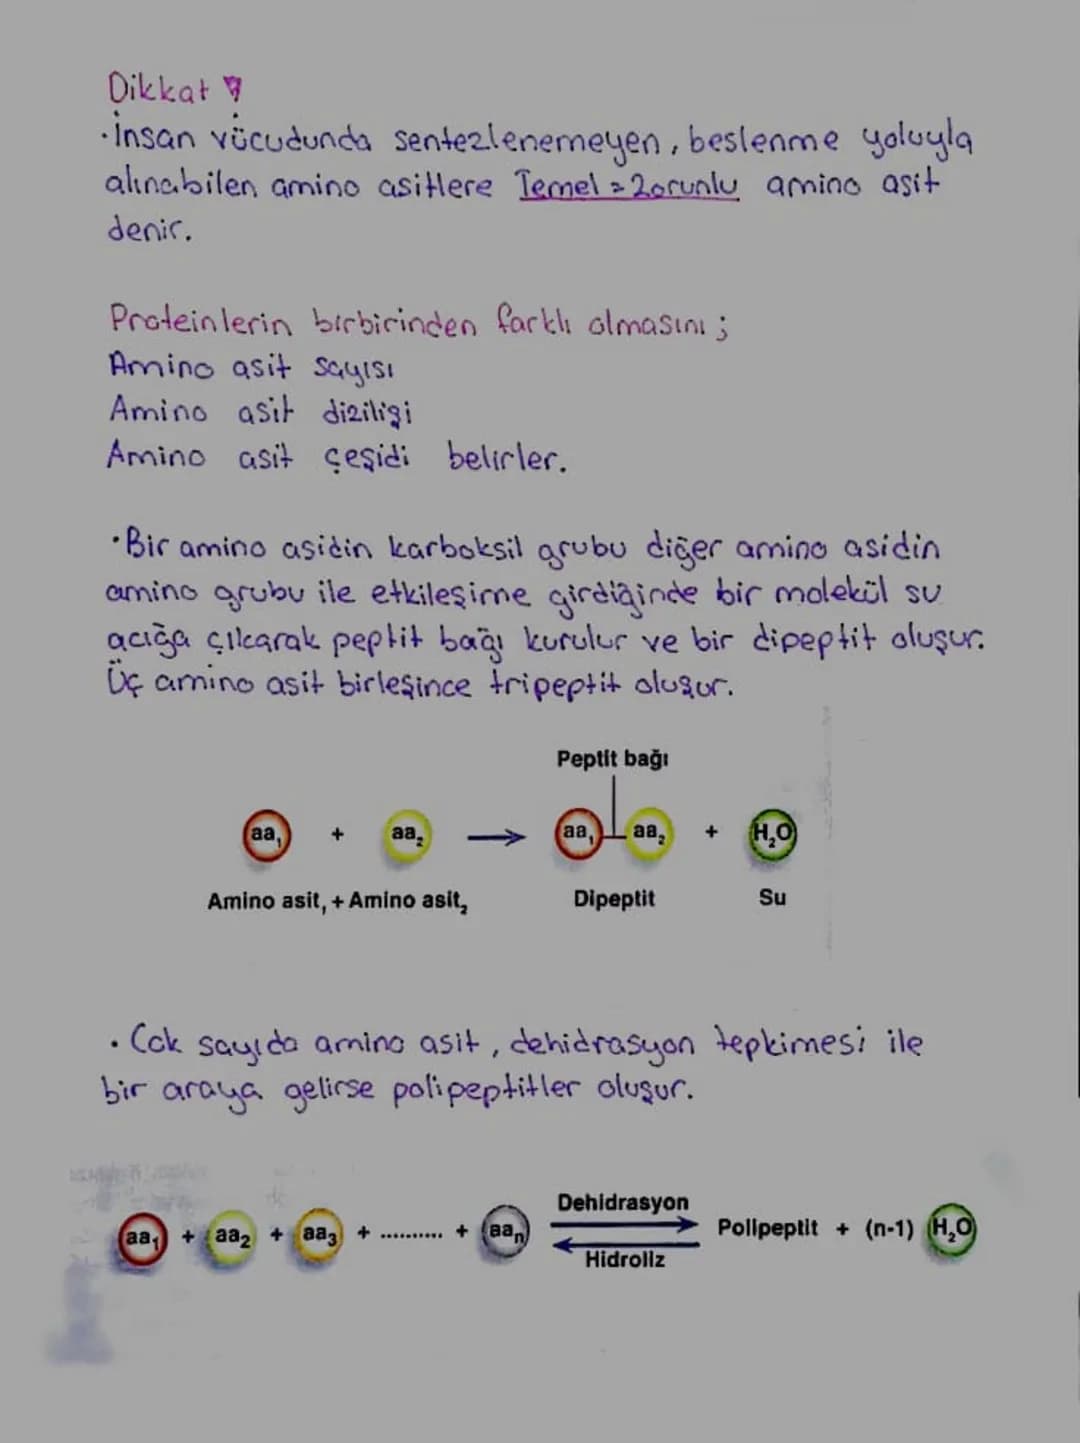 Dikkat
• İnsan vücudunda sentezlenemeyen, beslenme yoluyla
alınabilen amino asitlere Temel = Zorunlu amino asit
denir.
Proteinlerin birbirinden farklı olmasını ;
Amino asit sayısı
Amino asit dizilişi
Amino asit çeşidi belirler.
• Bir amino asidin karboksil grubu diğer amino asidin
amino grubu ile etkileşime girdiğinde bir molekül su
açığa çıkarak peptit bağı kurulur ve bir dipeptit oluşur.
Üç amino asit birleşince tripeptit oluşur.
Peptit bağı
aa₁ + aa₂ → aa₁ aa₂ + H₂O
Amino asit₁ + Amino asit₂ Dipeptit Su
• Çok sayıda amino asit, dehidrasyon tepkimesi ile
bir araya gelirse polipeptitler oluşur.
Dehidrasyon
aa₁ + aa₂ + aa₃ + .......... + aaₙ Polipeptit + (n-1) H₂O
Hidroliz